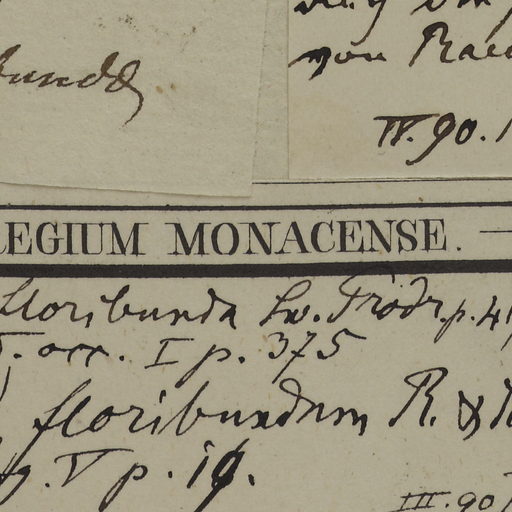 von
IV. 90.
LEGIUM MONACENSE.
floribunda Sw. Prodr. p. 4
occ. I p. 375
floribundum R. &
V p. 19.
III. 90